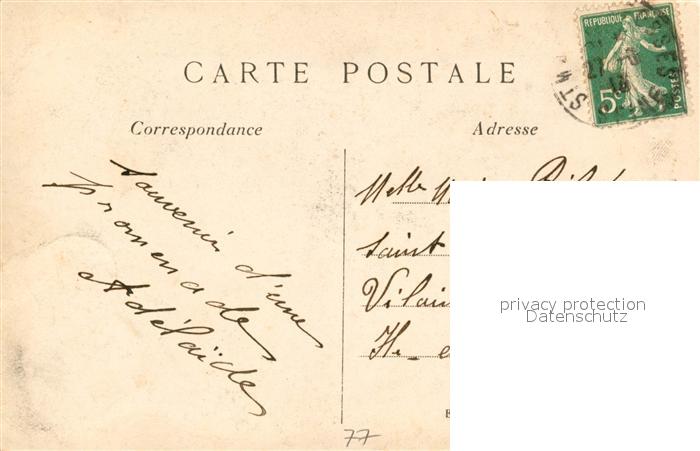 CARTE POSTALE
REPUBLIQUE FRANÇAISE
5c
POSTES
Correspondance
Adresse
souvenir d'une
promenade
Adélaïde
Melle
Saint
Vilain
H-e
privacy protection
Datenschutz
77